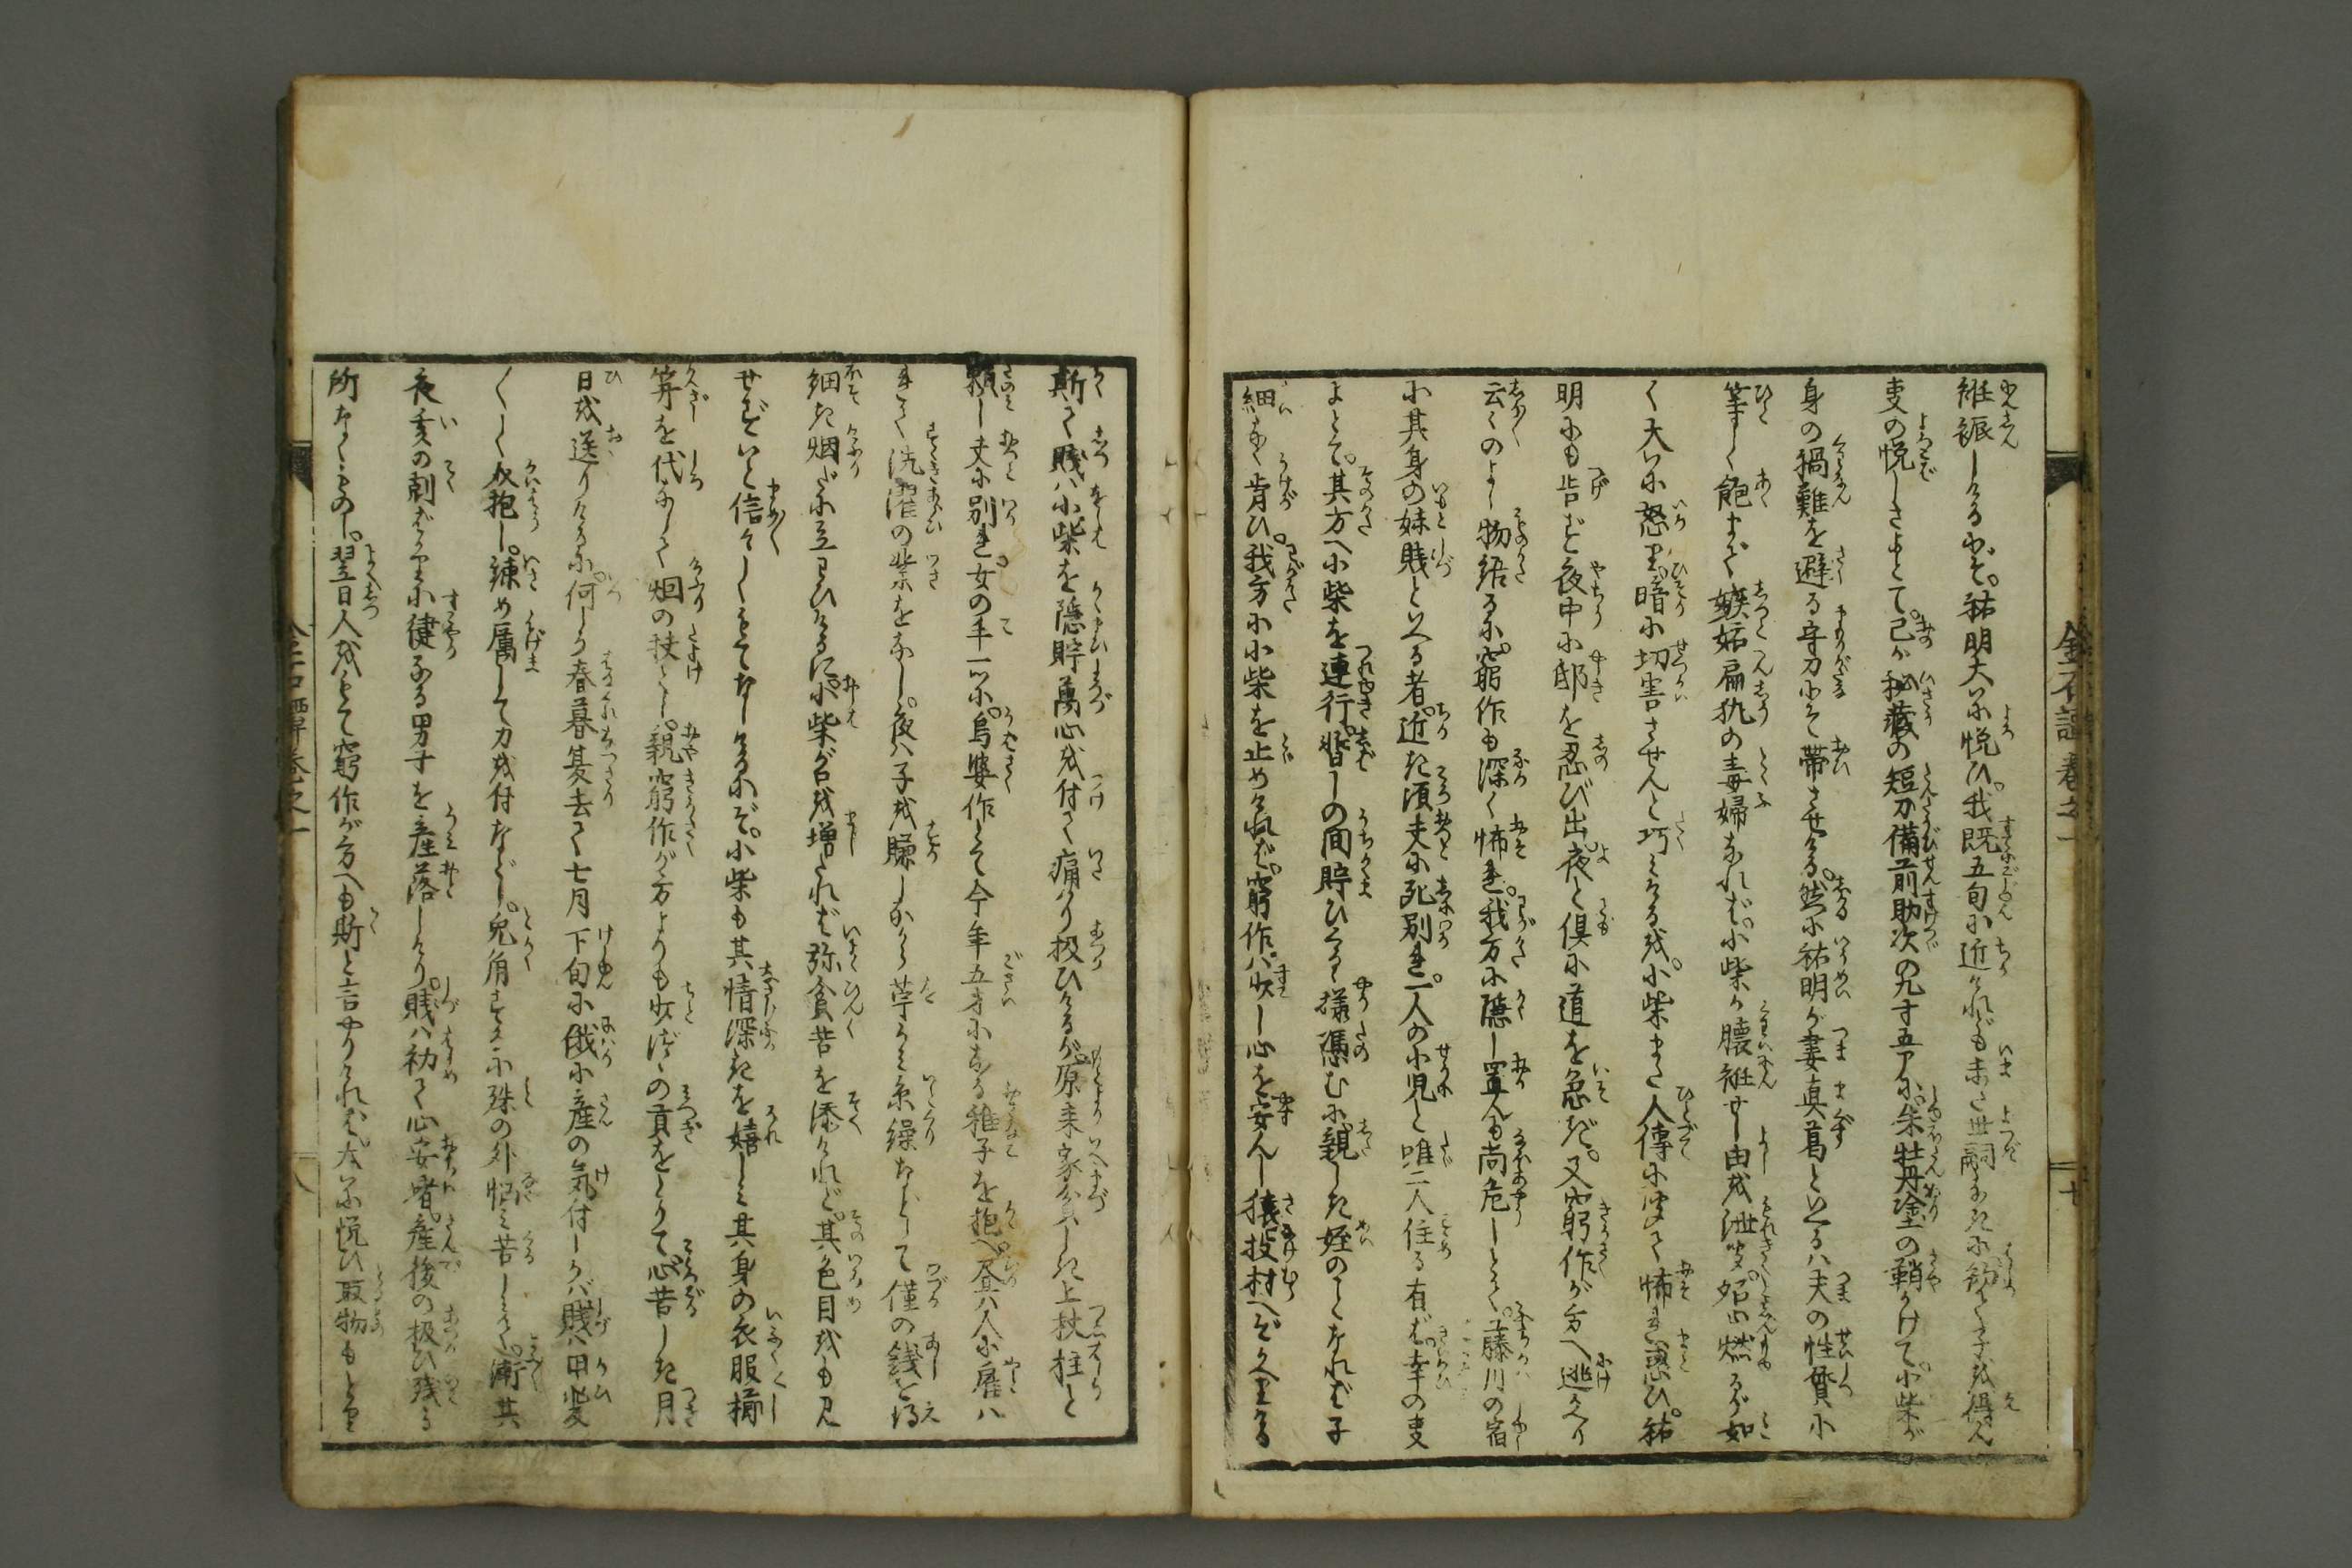 金石譚巻之一
七
妊娠しけるにぞ。祐明大に悦ひ。我既五旬に近けれども未だ世嗣なきに初て子を得ん
事の悦しさよとて。己が秘蔵の短刀備前助次の九寸五分に。朱牡丹塗の鞘かけて。小柴が
身の禍難を避る守刀にとて帯させける。然に祐明が妻真葛といへるハ夫の性質に
等しく飽まで嫉妬扁執の毒婦なれば。小柴が懐妊せし由を泄聞。妬心燃るが如
く大に怒り。暗に切害させんと巧みけるを。小柴また人傳に聞て怖れ惑ひ。祐
明にも告ず夜中に邸を忍び出。夜と倶に道を急ぎ。又窮作が方へ逃かへり
云々のよし物語るに。窮作も深く怖れ。我方に隠し置んも尚危しとて。藤川の宿
に其身の妹賤といへる者。近き頃夫に死別れ。一人の小児と唯二人住る有ば。幸の事
よとて。其方へ小柴を連行。暫しの間貯ひくるゝ様憑むに。親しき姪のことなれば子
細なく肯ひ。我方に小柴を止めければ。窮作ハ少し心を安んし猿投村へぞかへりける
斯て賤ハ小柴を隠貯萬心を付て痛はり扱ひけるが。原来家貧しき上杖柱と
頼し夫に別れ女の手一ツに。烏婆作とて今年五才になる稚子を抱へ。昼ハ人に雇ハ
れて洗濯の業をなし。夜ハ子を臊しながら苧うみ糸繰などして僅の銭を得
細き烟だに立わひけるに。小柴が口を増たれば弥貧苦を添けれど。其色目をも見
せずいと信々しくもてなしけるにぞ。小柴も其情深きを嬉しみ其身の衣服櫛
笄を代なして烟の扶とし。親窮作が方よりも少づゝの貢をとりて心苦しき月
日を送りけるに。何しか春暮夏去て七月下旬に俄に産の気付しかバ賤ハ甲斐
〱しく介抱し。諫め励して力を付などし。兎角するに殊の外悩み苦しみて。漸其
夜亥の刻ばかりに健なる男子を産落しけり。賤ハ初て心安堵。産後の扱ひ残る
所なくものし。翌日人をもて窮作が方へも斯と言やりければ。大に悦ひ取物もとり
金石譚巻之一
八